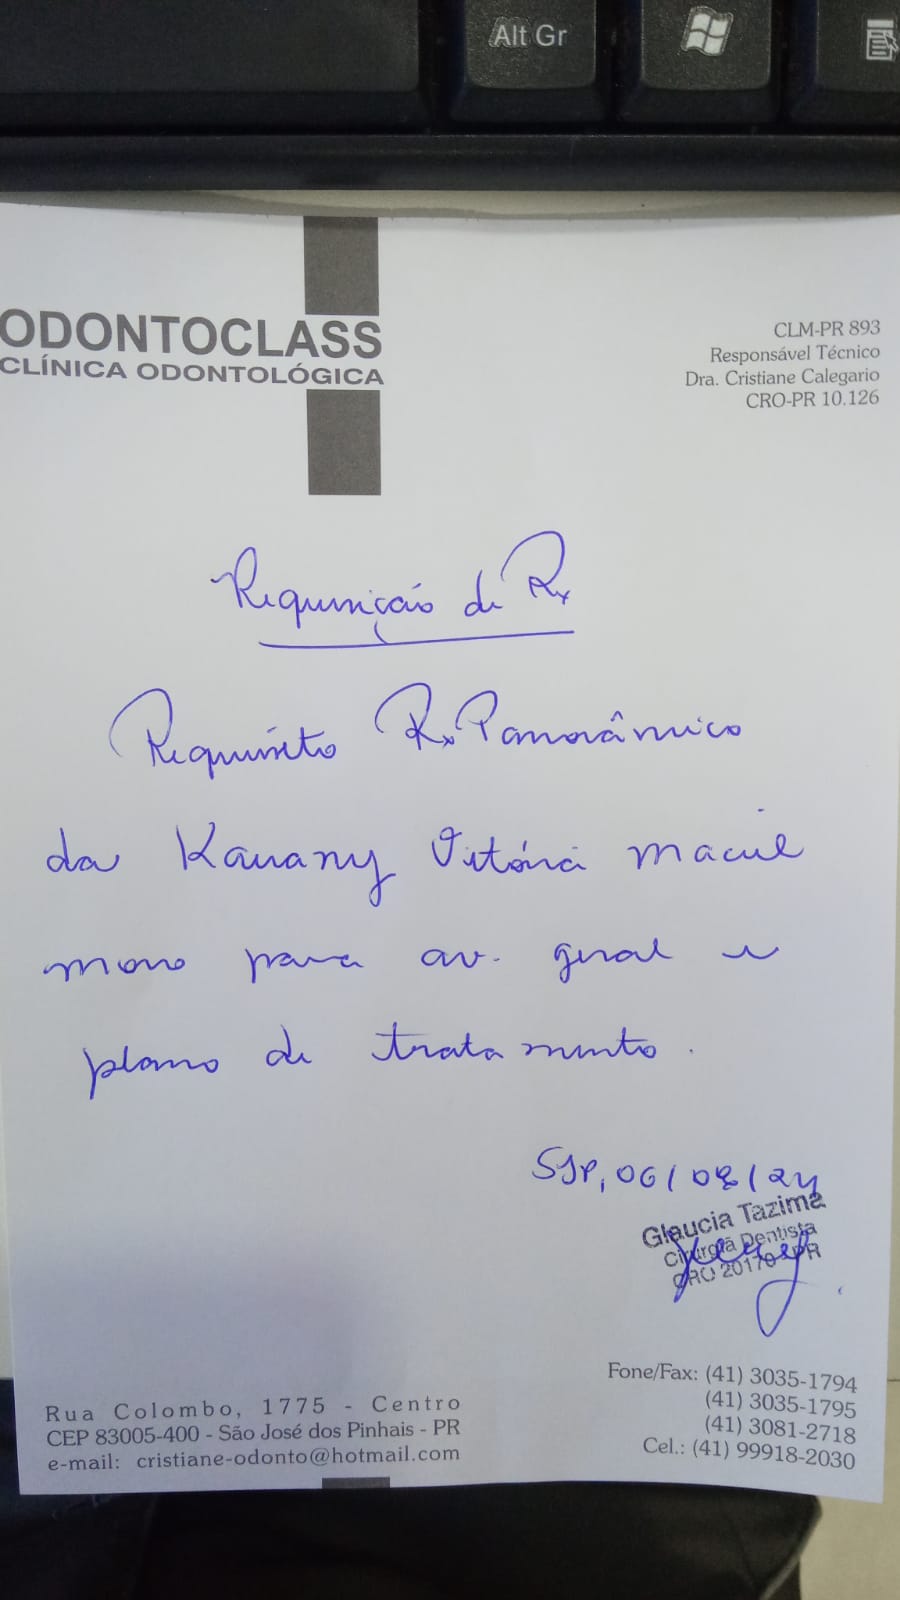 Alt Gr
ODONTOCLASS
CLÍNICA ODONTOLÓGICA
CLM-PR 893
Responsável Técnico
Dra. Cristiane Calegario
CRO-PR 10.126
Requisição de Rx
Requisito Rx Panorâmico
da Kauany Vitória Maciel
para av. geral e
plano de tratamento.
SJP, 06/08/24
Glaucia Tazima
Cirurgiã Dentista
CRO 20179 PR
Rua Colombo, 1775 - Centro
CEP 83005-400 - São José dos Pinhais - PR
e-mail: cristiane-odonto@hotmail.com
Fone/Fax: (41) 3035-1794
(41) 3035-1795
(41) 3081-2718
Cel.: (41) 99918-2030